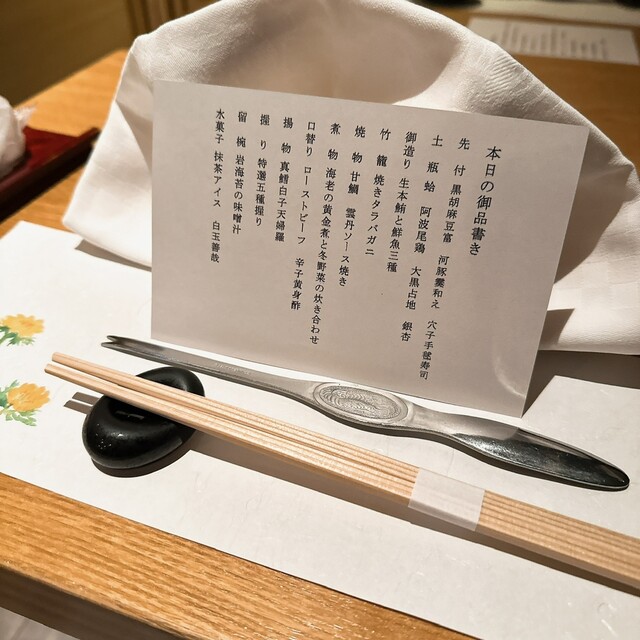 本日の御品書き
先 付 黒胡麻豆富 河豚霙和え 穴子手毬寿司
土 瓶 蛤 阿波尾鶏 大黒占地 銀杏
御造り 生本鮪と鮮魚三種
竹 籠 焼きタラバガニ
焼 物 甘鯛 雲丹ソース焼き
煮 物 海老の黄金煮と冬野菜の炊き合わせ
口替り ローストビーフ 辛子黄身酢
揚 物 真鱈白子天婦羅
握 り 特選五種握り
留 椀 岩海苔の味噌汁
水菓子 抹茶アイス 白玉善哉